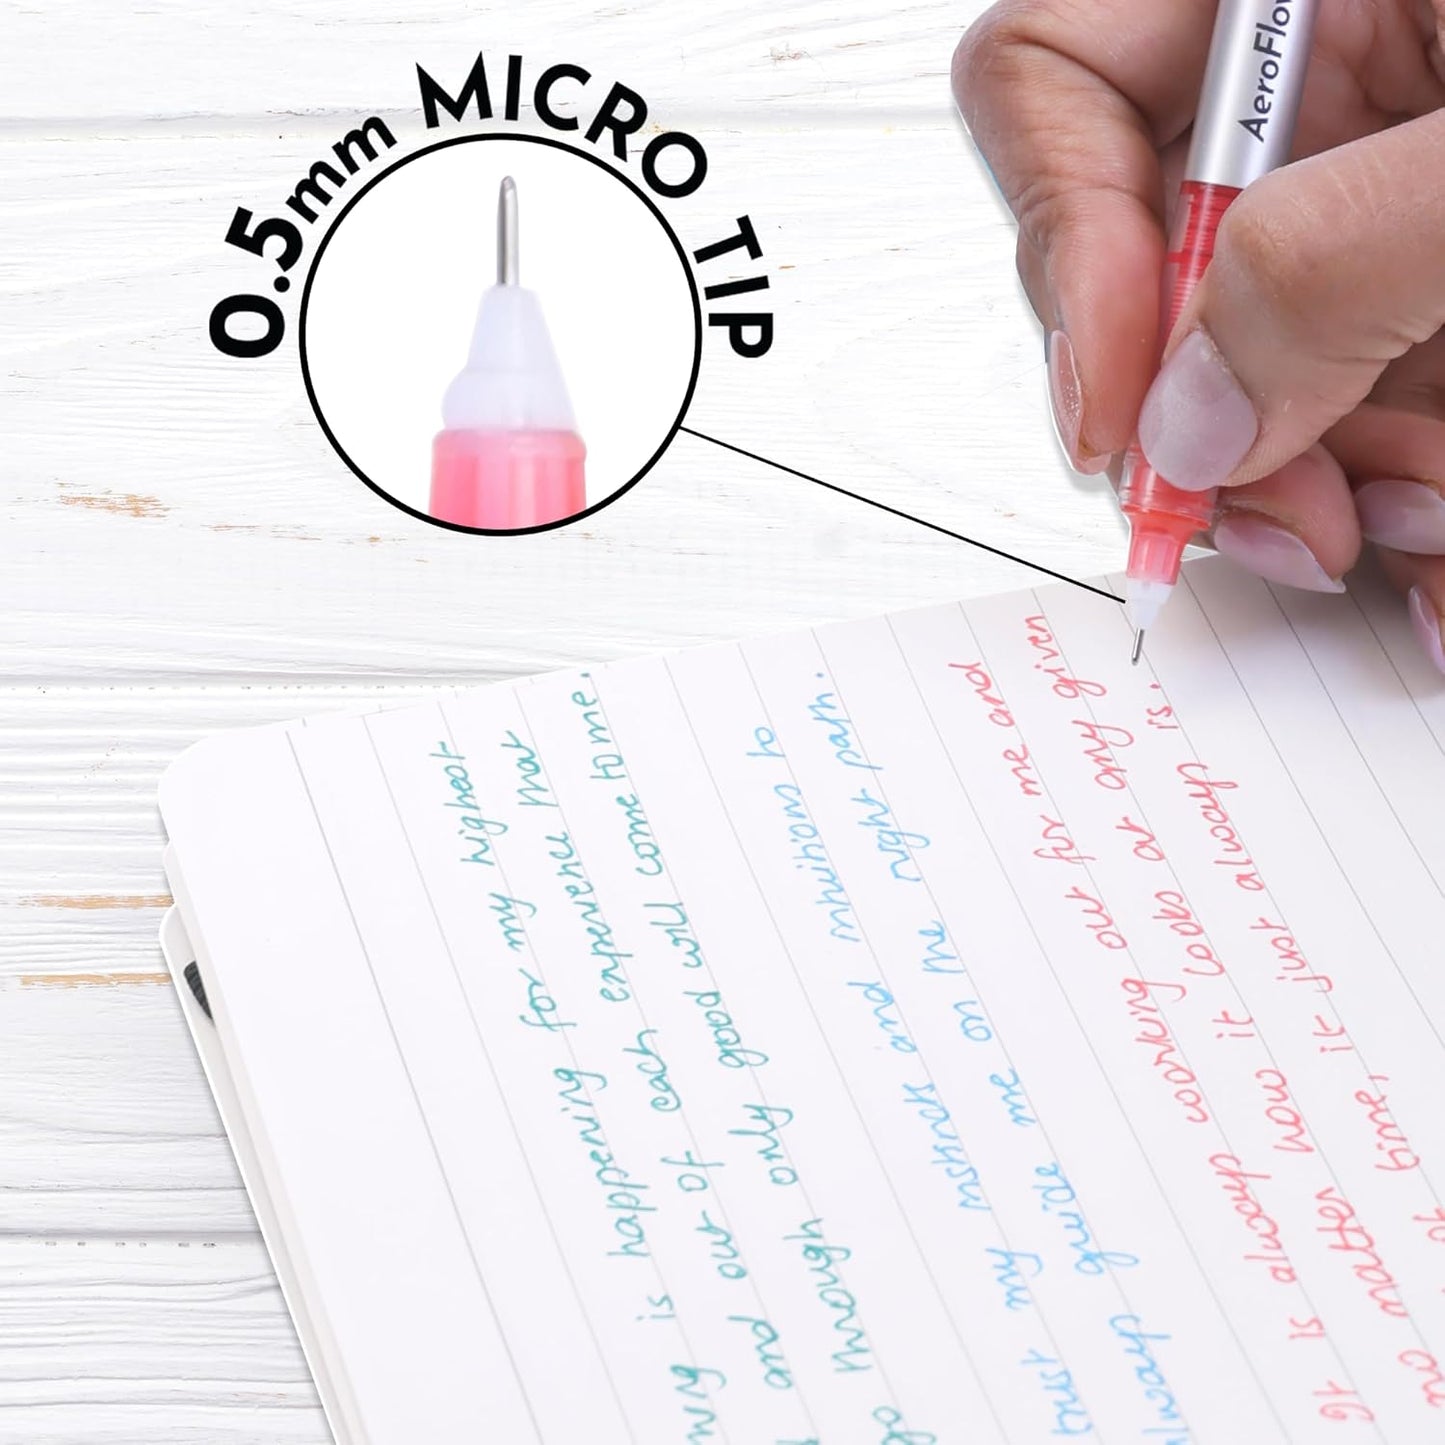 0.5mm MICRO TIP
AeroFlow
is happening for my highest
and out of each experience that
go through only good will come to me.
trust my instincts and intuition to
always guide me on the right path.
It is always working out for me and
no matter how it looks at any given
time, it just always is.